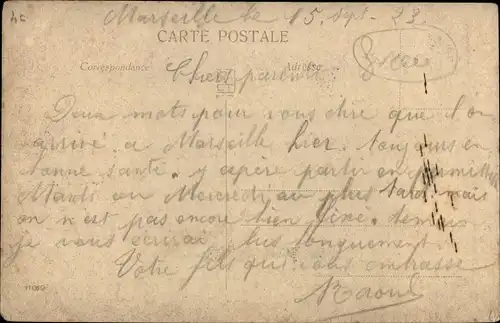 Marseille le 15. Sept. 23.
CARTE POSTALE
Correspondance
Adresse
Chers parents
Deux mots pour vous dire que l'on
arrivé a Marseille hier. toujours en
bonne santé. partir en
Mardi ou Mercredi au plus tard mais
on n'est pas encore bien fixé. demain
je vous écrirai plus longuement.
Votre fils qui vous embrasse
Raoul